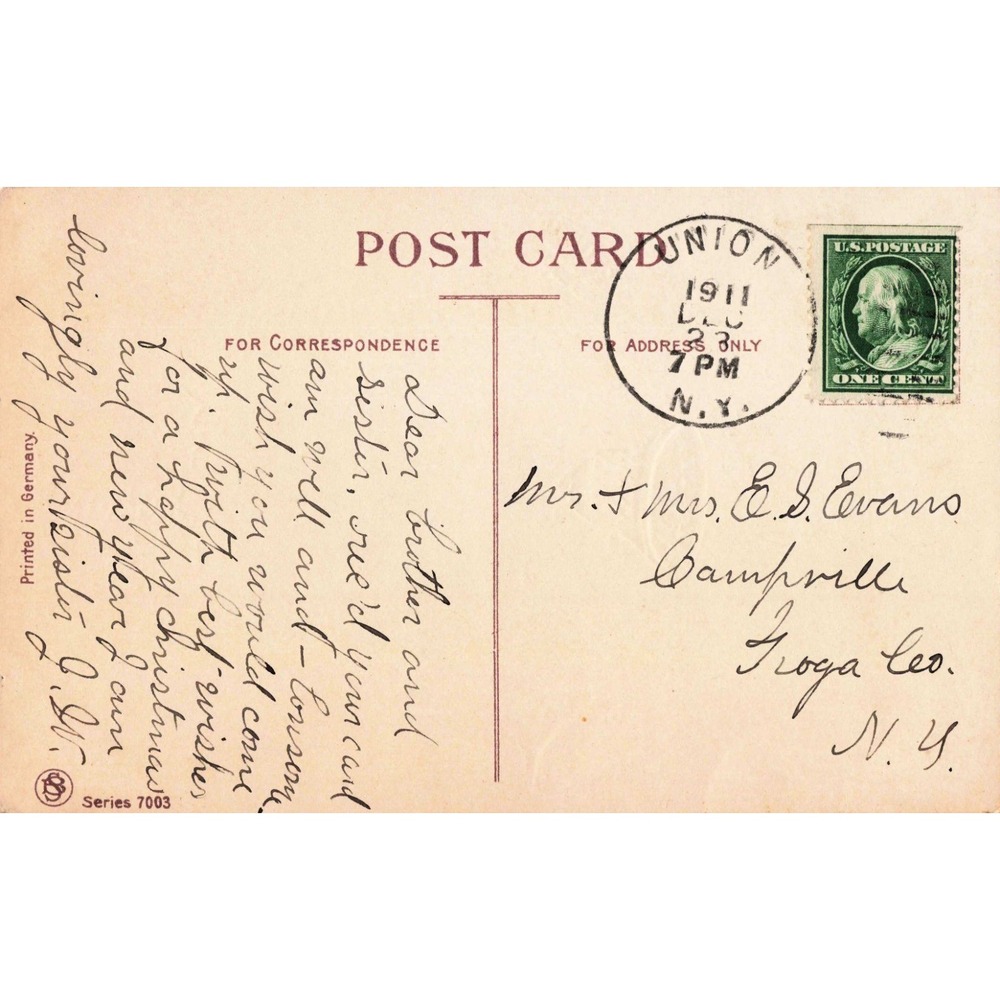 POST CARD
UNION
1911
DEC
23
7 PM
N.Y.
U.S. POSTAGE
ONE CENT
FOR CORRESPONDENCE
FOR ADDRESS ONLY
Dear brother and
sister, rec'd your card
am well and - lonsome
wish you would come
up. with best wishes
for a happy christmas
and new year I am
lovingly your sister J. W.
Mr. + Mrs. E. S. Evans
Campville
Tioga Co.
N. Y.
Printed in Germany.
Series 7003